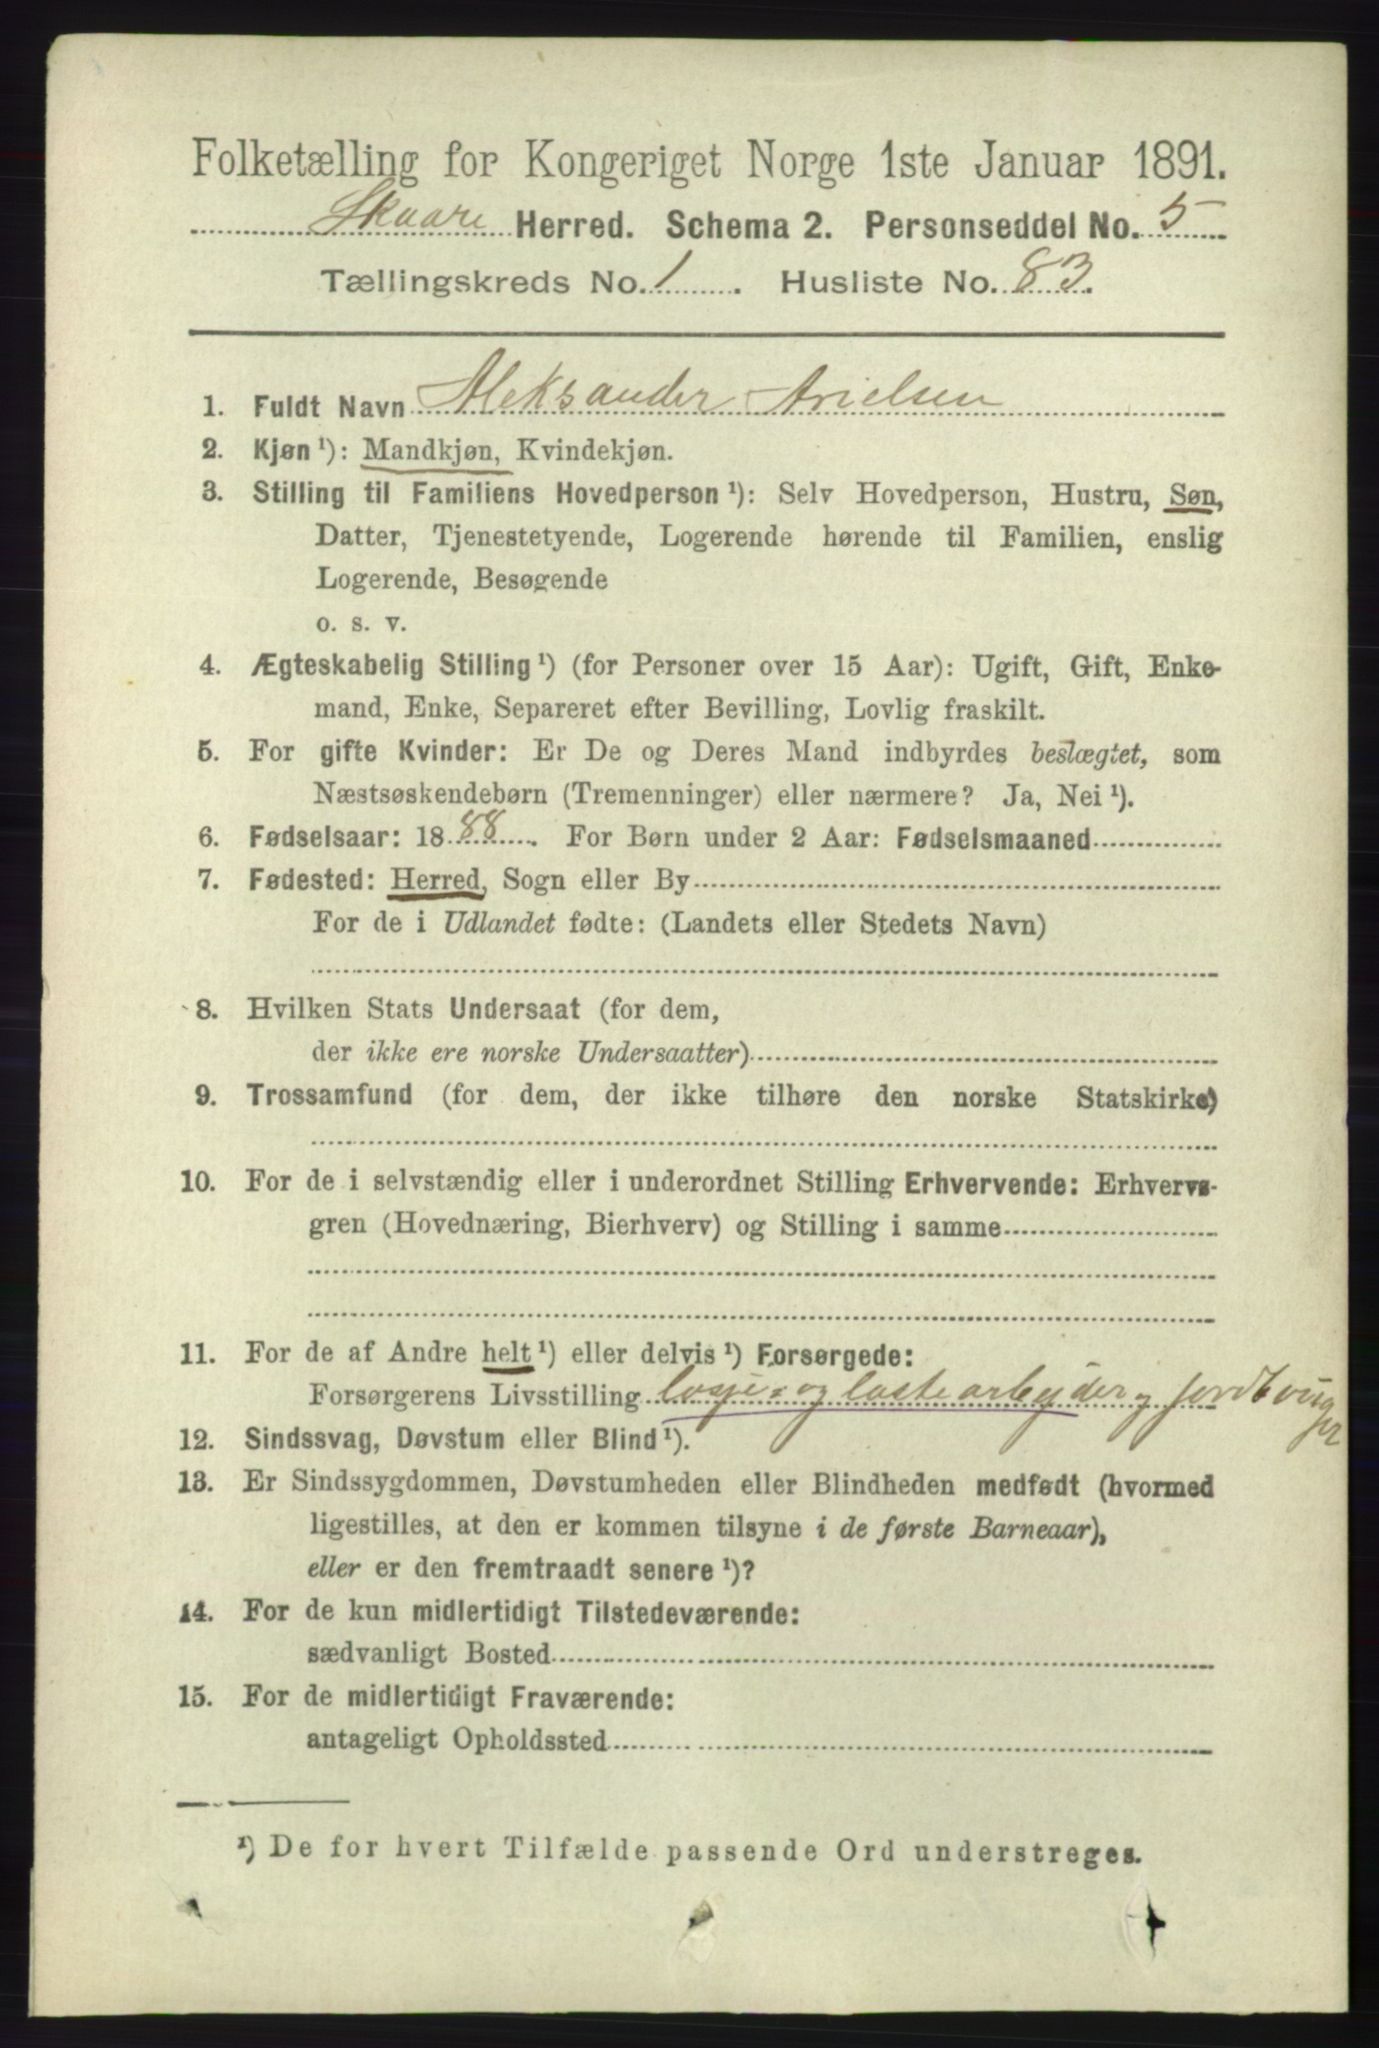 Folketælling for Kongeriget Norge 1ste Januar 1891.
Skaare Herred. Schema 2. Personseddel No. 5
Tællingskreds No. 1. Husliste No. 83.
1. Fuldt Navn Aleksander Arielsen
2. Kjøn¹): Mandkjøn, Kvindekjøn.
3. Stilling til Familiens Hovedperson¹): Selv Hovedperson, Hustru, Søn,
Datter, Tjenestetyende, Logerende hørende til Familien, enslig
Logerende, Besøgende
o. s. v.
4. Ægteskabelig Stilling¹) (for Personer over 15 Aar): Ugift, Gift, Enke-
mand, Enke, Separeret efter Bevilling, Lovlig fraskilt.
5. For gifte Kvinder: Er De og Deres Mand indbyrdes beslægtet, som
Næstsøskendebørn (Tremenninger) eller nærmere? Ja, Nei¹).
6. Fødselsaar: 1888. For Børn under 2 Aar: Fødselsmaaned
7. Fødested: Herred, Sogn eller By
For de i Udlandet fødte: (Landets eller Stedets Navn)
8. Hvilken Stats Undersaat (for dem,
der ikke ere norske Undersaatter)
9. Trossamfund (for dem, der ikke tilhøre den norske Statskirke)
10. For de i selvstændig eller i underordnet Stilling Erhvervende: Erhvervs-
gren (Hovednæring, Bierhverv) og Stilling i samme
11. For de af Andre helt¹) eller delvis¹) Forsørgede:
Forsørgerens Livsstilling losje- og lastearbejder og jordbruger
12. Sindssvag, Døvstum eller Blind¹).
13. Er Sindssygdommen, Døvstumheden eller Blindheden medfødt (hvormed
ligestilles, at den er kommen tilsyne i de første Barneaar),
eller er den fremtraadt senere¹)?
14. For de kun midlertidigt Tilstedeværende:
sædvanligt Bosted
15. For de midlertidigt Fraværende:
antageligt Opholdssted
¹) De for hvert Tilfælde passende Ord understreges.